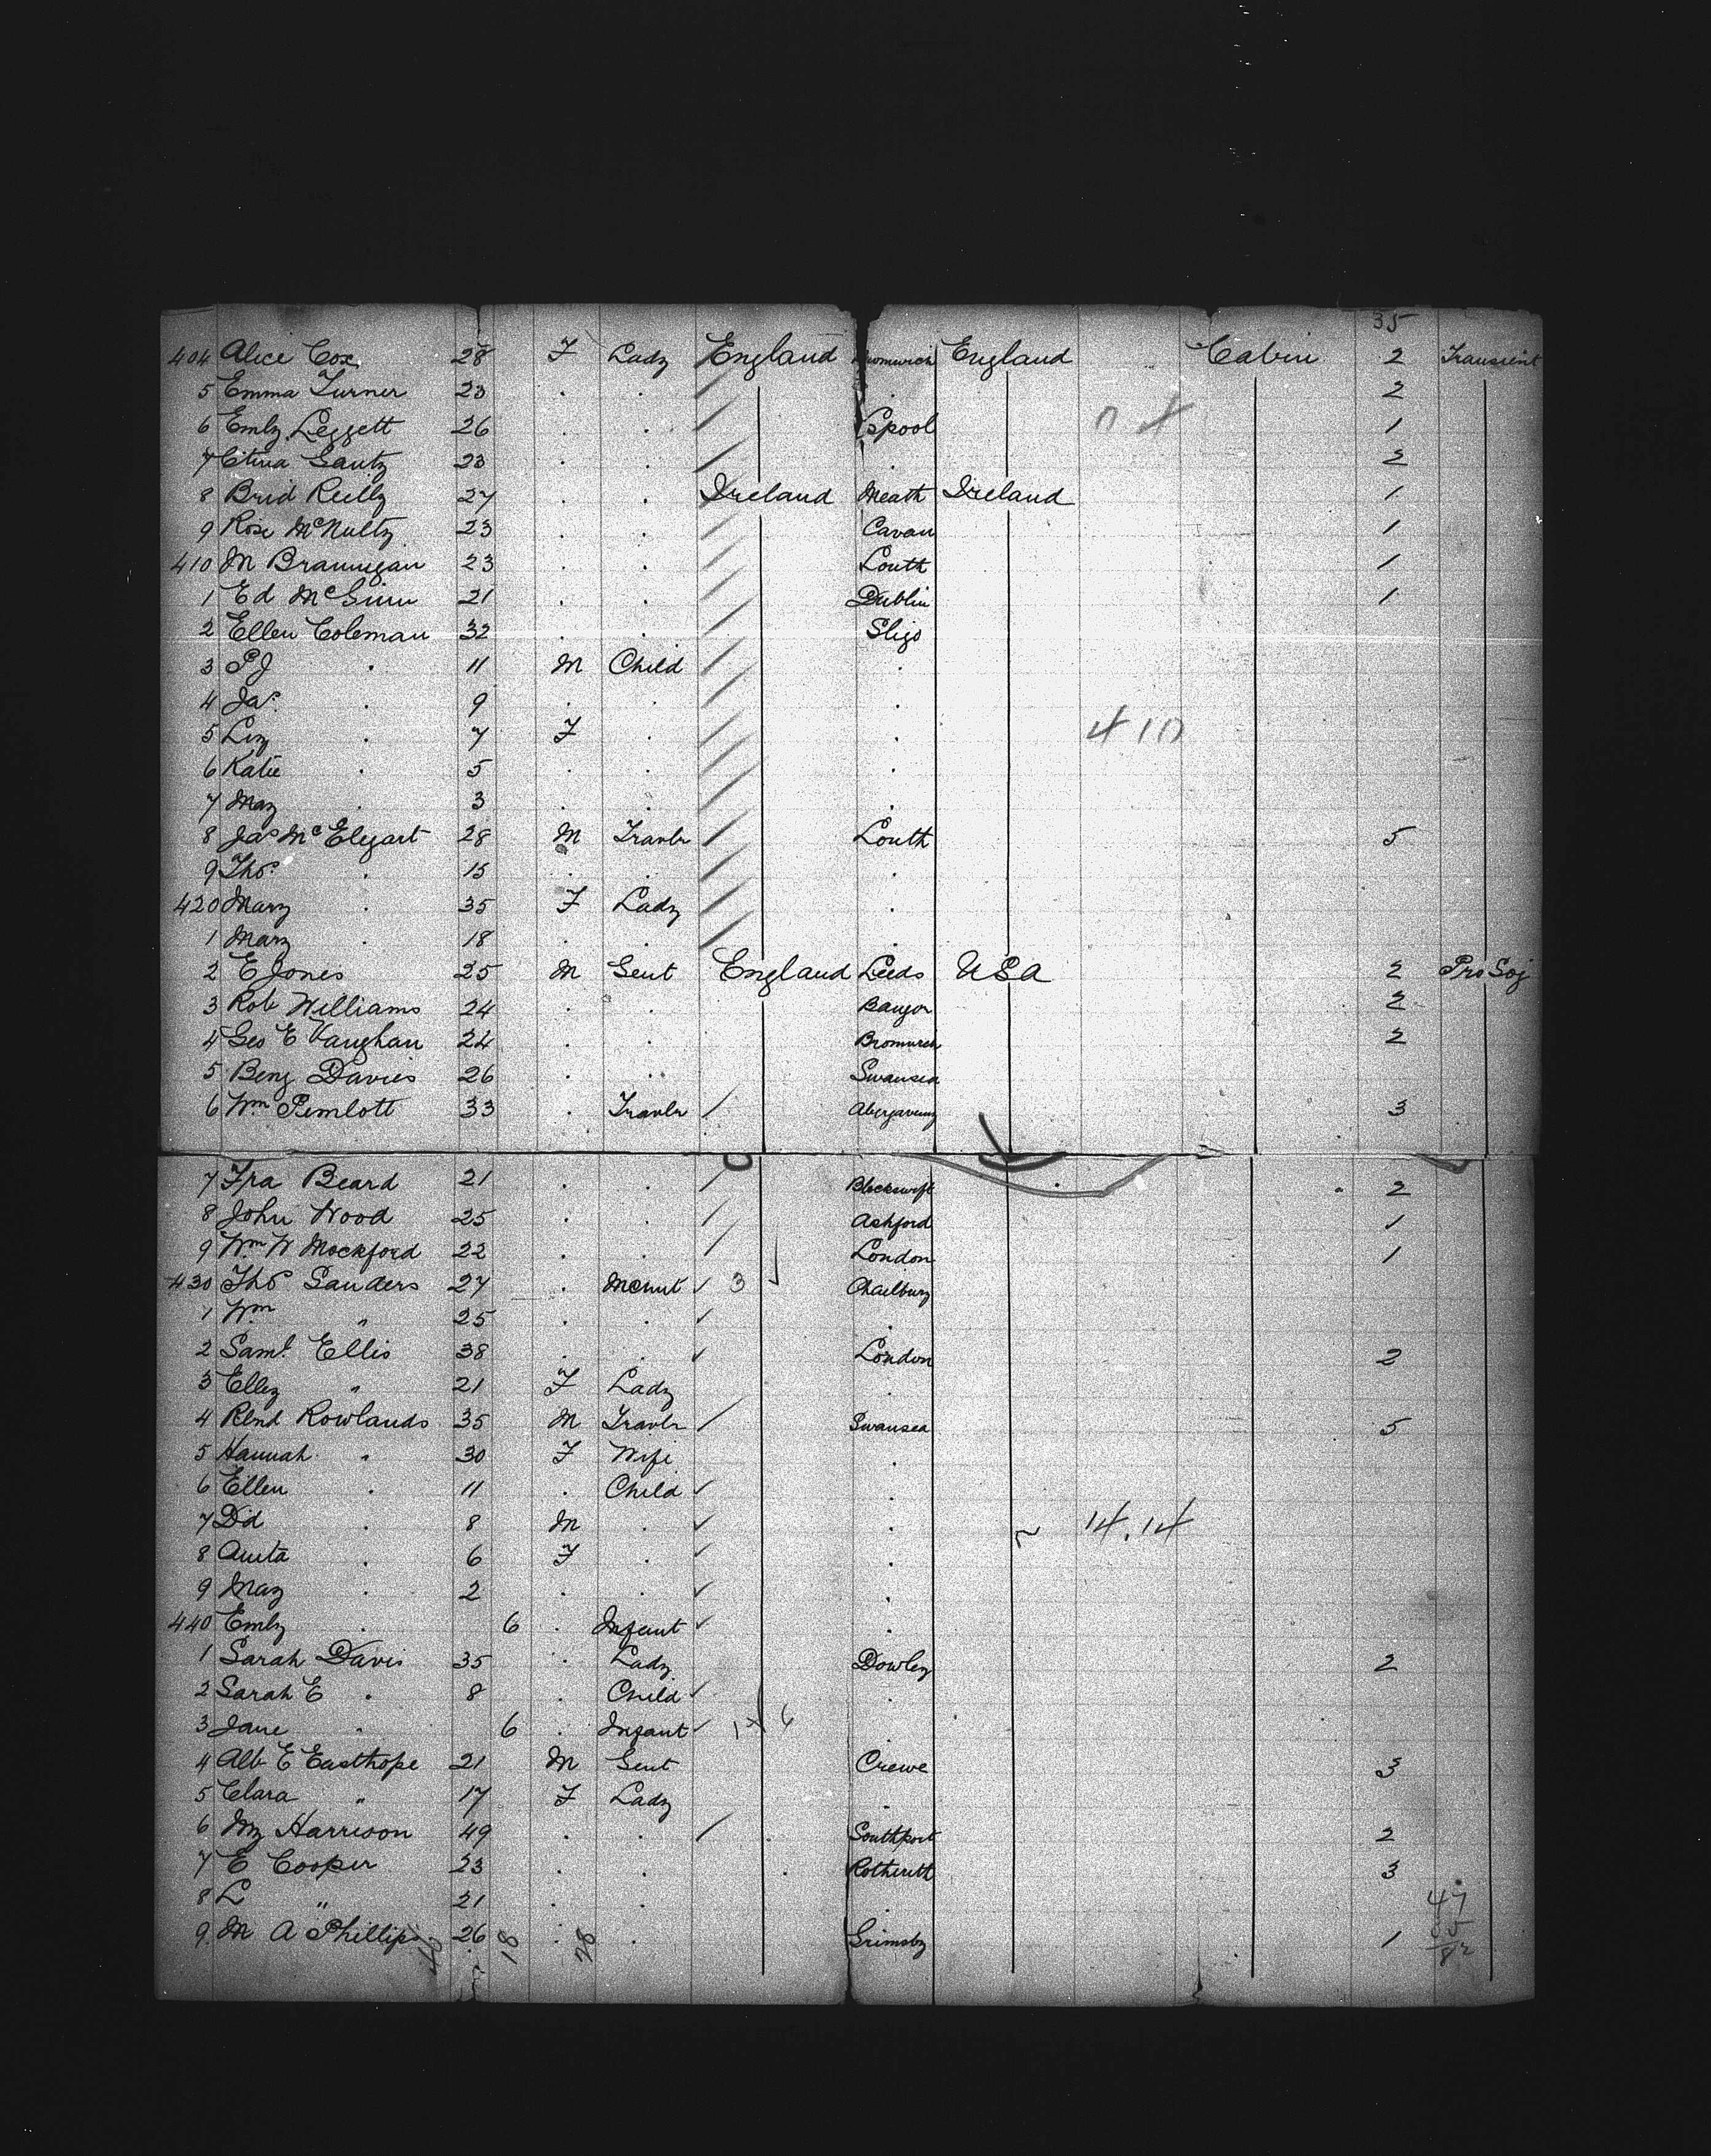 35
404 Alice Cox 28 F Lady England Bromwich England Cabin 2 Transient
5 Emma Turner 23 . . . 2
6 Emly Leggett 26 . . Lpool 1
7 Gantz 23 . . . 2
8 Brid Reilly 27 . . Ireland Meath Ireland 1
9 Rose McNulty 23 . . Cavan 1
410 M Brannigan 23 . . Louth 1
1 Ed McGinn 21 . . Dublin 1
2 Ellen Coleman 32 . . Sligo
3 PJ . 11 M Child .
4 Jas . 9 . . .
5 Liz . 7 F . .
6 Katie . 5 . . .
7 May . 3 . . .
8 Jas McElegart 28 M Travlr Louth 5
9 Thos . 15 . . .
420 Mary . 35 F Lady .
1 Mary . 18 . . .
2 E Jones 25 M Gent England Leeds USA 2 Pro Soj
3 Rob Williams 24 . . Bangor 2
4 Geo E Vaughan 24 . . Bromwich 2
5 Benj Davies 26 . . Swansea
6 Wm Pimlott 33 . Travlr Abergavenny 3
7 Fra Beard 21 . . 2
8 John Wood 25 . . Ashford 1
9 Wm W Mockford 22 . . London 1
430 Thos Sanders 27 . Mchnt 3 Charlbury
1 Wm " 25 . . .
2 Saml Ellis 38 . . London 2
3 " 21 F Lady .
4 Rowlands 35 M Travlr Swansea 5
5 Hannah " 30 F Wife .
6 Ellen . 11 . Child .
7 Dd . 8 M . . 14.14
8 . 6 F . .
9 May . 2 . . .
440 Emly . 6 . Infant .
1 Sarah Davis 35 . Lady Dowley 2
2 Sarah E . 8 . Child .
3 Jane . 6 . Infant
4 Alb E Easthope 21 M Gent Crewe 3
5 Clara " 17 F Lady .
6 My Harrison 49 . . Southport 2
7 E Cooper 23 . . 3
8 L " 21 . . . 47
9 M A Phillips 26 . . Grimsby 1